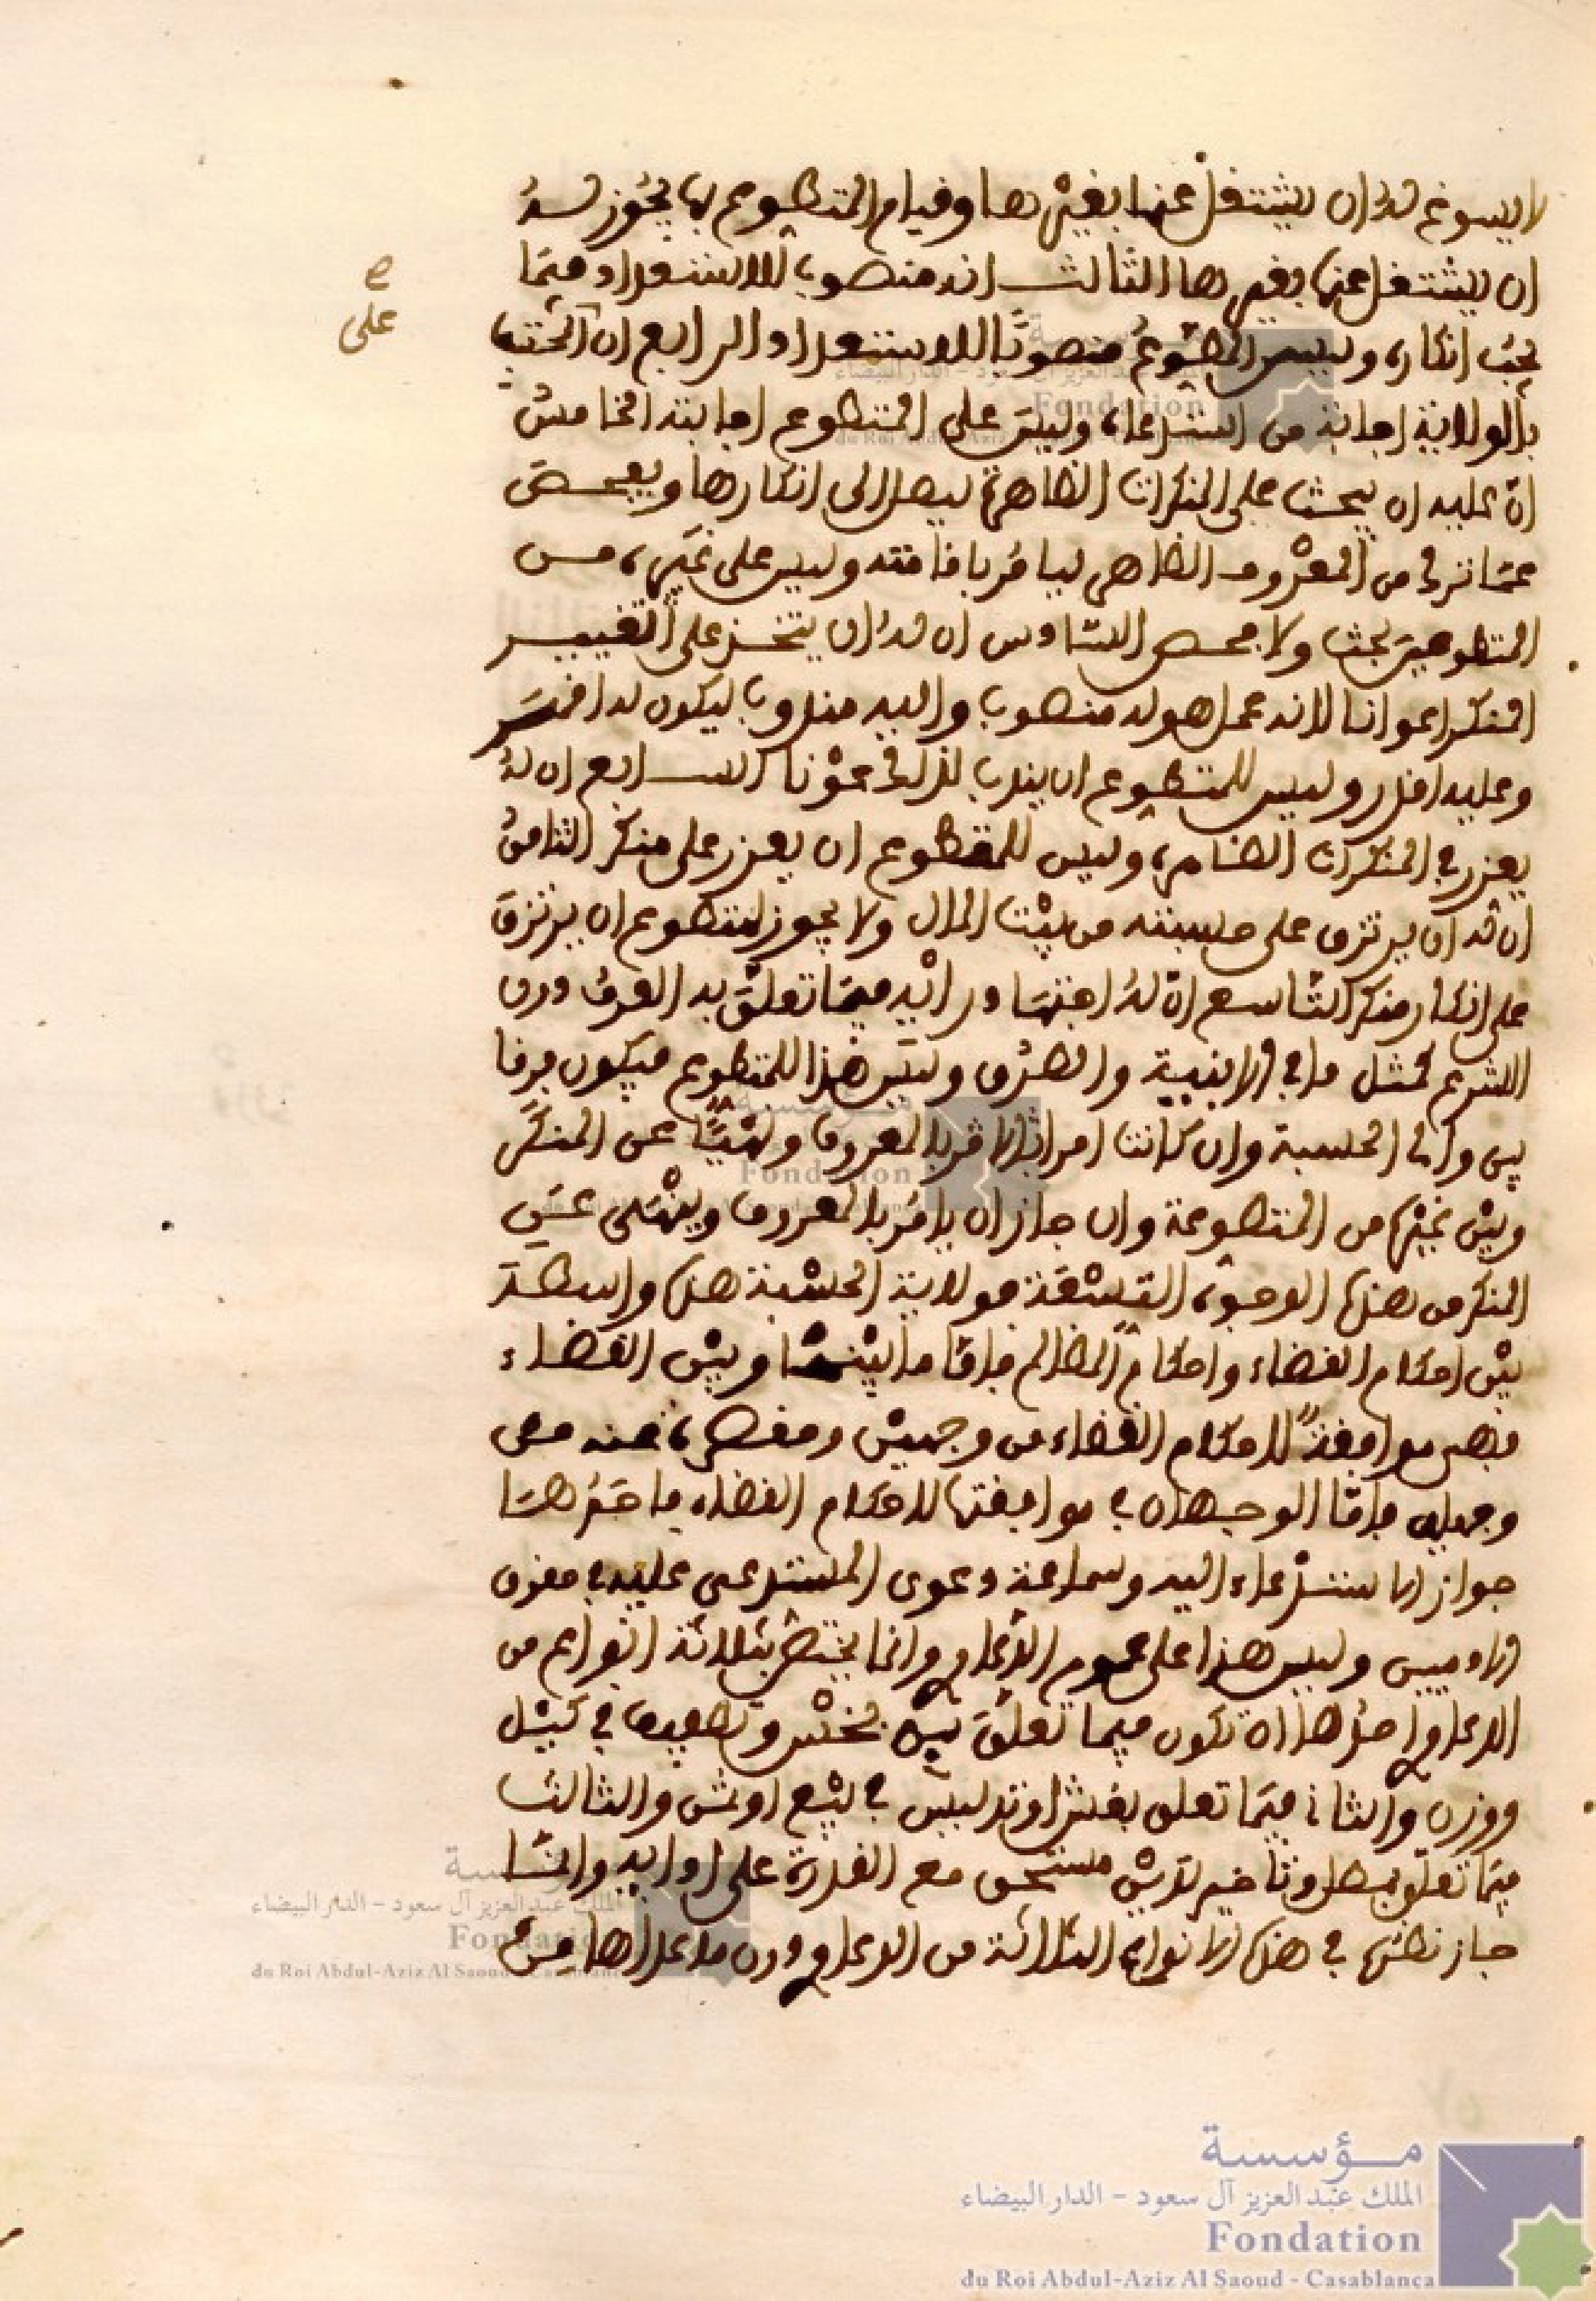 لا يسوغ له ان يشتغل عنها بغيرها وقيام المتطوع بها يجوز له
ان يشتغل عنها بغيرها الثالث انه منصوب للاستعداد فيما
يجب انكاره وليس المطوع منصوبا للاستعداد الرابع ان المحتسب
على
بالولاية اجابة من استدعاه وليس على المتطوع اجابته الخامس
ان عليه ان يبحث على المنكرات الظاهرة ليصل الى انكارها ويفحص
عما ترك من المعروف الظاهر ليامر باقامته وليس على غيره من
المتطوعين بحث ولا فحص السادس ان له ان يتخذ على التغيير
المنكر اعوانا لانه عمل هو له منصوب واليه مندوب ليكون له اقهر
وعليه اقدر وليس للمتطوع ان يندب لذلك عونا السابع ان له
يعزر في المنكرات الظاهرة وليس للمتطوع ان يعزر على منكر الثامن
ان له ان يرتزق على حسبته من بيت المال ولا يجوز لمتطوع ان يرتزق
على انكار منكر التاسع ان له اجتهاد رايه فيما تعلق به العرف دون
الشرع كمثل ما في الابنية والطرق وليس هذا للمتطوع فيكون فرقا
بين والى الحسبة وان كانت امرا بالمعروف ونهيا عن المنكر
وبين غيره من المتطوعة وان جاز ان يامر بالمعروف وينهى عن
المنكر من هذه الوجوه التسعة فولاية الحسبة هذه واسطة
بين احكام القضاء واحكام المظالم فاما ما بينها وبين القضاء
فهي موافقة لاحكام القضاء من وجهين ومقصرة عنه من
وجهين فاما الوجهان في موافقتها لاحكام القضاء فاحدهما
جواز الاستدعاء اليه وسماعه دعوى المستدعي عليه في حقوق
الادميين وليس هذا على عموم الدعاوي وانما يختص بثلاثة انواع من
الدعاوي احدها ان تكون فيما تعلق ببخس وتطفيف في كيل
ووزن والثاني فيما تعلق بغش او تدليس في بيع او ثمن والثالث
فيما تعلق بمطل وتاخير لدين مستحق مع القدرة على ادايه وانما
جاز نظره في هذه الانواع الثلاثة من الدعاوي دون ما عداها من
مؤسسة
الملك عبد العزيز آل سعود - الدار البيضاء
Fondation
du Roi Abdul-Aziz Al Saoud - Casablanca